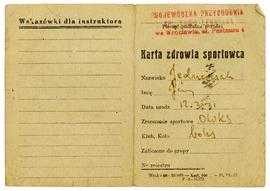 Wskazówki dla instruktora
WOJEWÓDZKA PRZYCHODNIA
we Wrocławiu, pl. Pasteura 4
Karta zdrowia sportowca
Nazwisko
Imię Jerzy
Data urodz 12.3.31
Zrzeszenie sportowe OWKS
Klub, Koło boks
Zaliczono do grupy
Nr rejestru